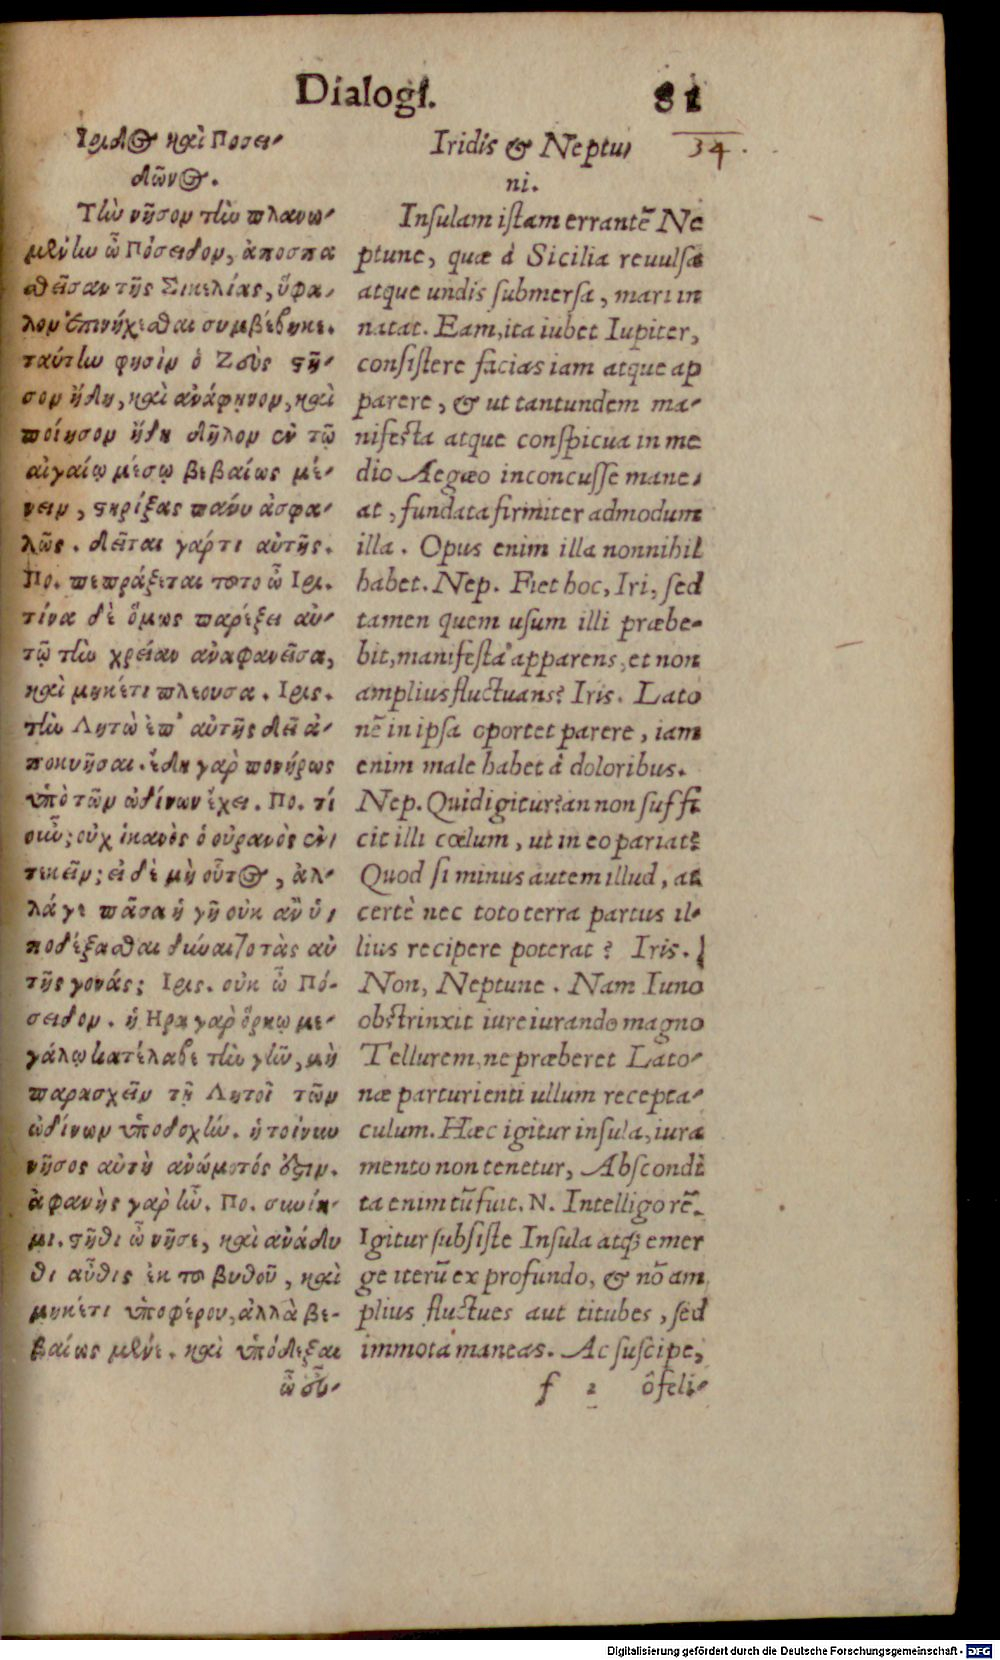 Dialogi. 81
34.
Ἴριδος καὶ Ποσει-
δῶνος.
Τὴν νῆσον τὴν πλανω-
μένην ὦ Πόσειδον, ἀποσπα
σθεῖσαν τῆς Σικελίας, ὕφα-
λον ἐπινήχεσθαι συμβέβηκε.
ταύτην φησὶν ὁ Ζεὺς στῆ-
σον ἤδη, καὶ ἀνάφηνον, καὶ
ποίησον ἤδη δῆλον ἐν τῷ
αἰγαίῳ μέσῳ βεβαίως μέ-
νειν, στηρίξας πάνυ ἀσφα-
λῶς. δεῖται γάρτι αὐτῆς.
Πο. πεπράξεται τοῦτο ὦ Ἶρι.
τίνα δὲ ὅμως παρέξει αὐ-
τῷ τὴν χρείαν ἀναφανεῖσα,
καὶ μηκέτι πλέουσα. Ἶρις.
τὴν Λητὼ ἐπ' αὐτῆς δεῖ ἀ-
ποκυῆσαι. ἤδη γὰρ πονήρως
ὑπὸ τῶν ὠδίνων ἔχει. Πο. τί
οὖν; οὐχ ἱκανὸς ὁ οὐρανὸς ἐν-
τεκεῖν; εἰ δὲ μὴ οὗτος, ἀλ-
λά γε πᾶσα ἡ γῆ οὐκ ἂν ὑ-
ποδέξασθαι δύναιτο τὰς αὐ
τῆς γονάς; Ἶρις. οὐκ ὦ Πό-
σειδον. ἡ Ἥρα γὰρ ὅρκῳ με-
γάλῳ κατέλαβε τὴν γῆν, μὴ
παρασχεῖν τῇ Λητοῖ τῶν
ὠδίνων ὑποδοχήν. ἡ τοίνυν
νῆσος αὐτὴ ἀνώμοτός ἐστιν.
ἀφανὴς γὰρ ἦν. Πο. συνίη-
μι. στῆθι ὦ νῆσε, καὶ ἀνάδυ
θι αὖθις ἐκ τοῦ βυθοῦ, καὶ
μηκέτι ὑποφέρου, ἀλλὰ βε-
βαίως μένε. καὶ ὑπόδεξαι
ὦ εὐ-
Iridis & Neptu-
ni.
Insulam istam errantē Ne
ptune, quæ à Sicilia reuulsa
atque undis submersa, mari in
natat. Eam, ita iubet Iupiter,
consistere facias iam atque ap
parere, & ut tantundem ma-
nifesta atque conspicua in me
dio Aegæo inconcusse mane-
at, fundata firmiter admodum
illa. Opus enim illa nonnihil
habet. Nep. Fiet hoc, Iri, sed
tamen quem usum illi præbe-
bit, manifesta apparens, et non
amplius fluctuans? Iris. Lato
nē in ipsa oportet parere, iam
enim male habet à doloribus.
Nep. Quid igitur? an non suffi
cit illi cœlum, ut in eo pariat?
Quod si minus autem illud, at
certè nec toto terra partus il-
lius recipere poterat? Iris.
Non, Neptune. Nam Iuno
obstrinxit iureiurando magno
Tellurem, ne præberet Lato-
næ parturienti ullum recepta-
culum. Hæc igitur insula, iura
mento non tenetur, Abscondi
ta enim tū fuit. N. Intelligo rē.
Igitur subsiste Insula atq; emer
ge iterū ex profundo, & nō am
plius fluctues aut titubes, sed
immota maneas. Ac suscipe,
f 2 ô feli-
Digitalisierung gefördert durch die Deutsche Forschungsgemeinschaft - DFG